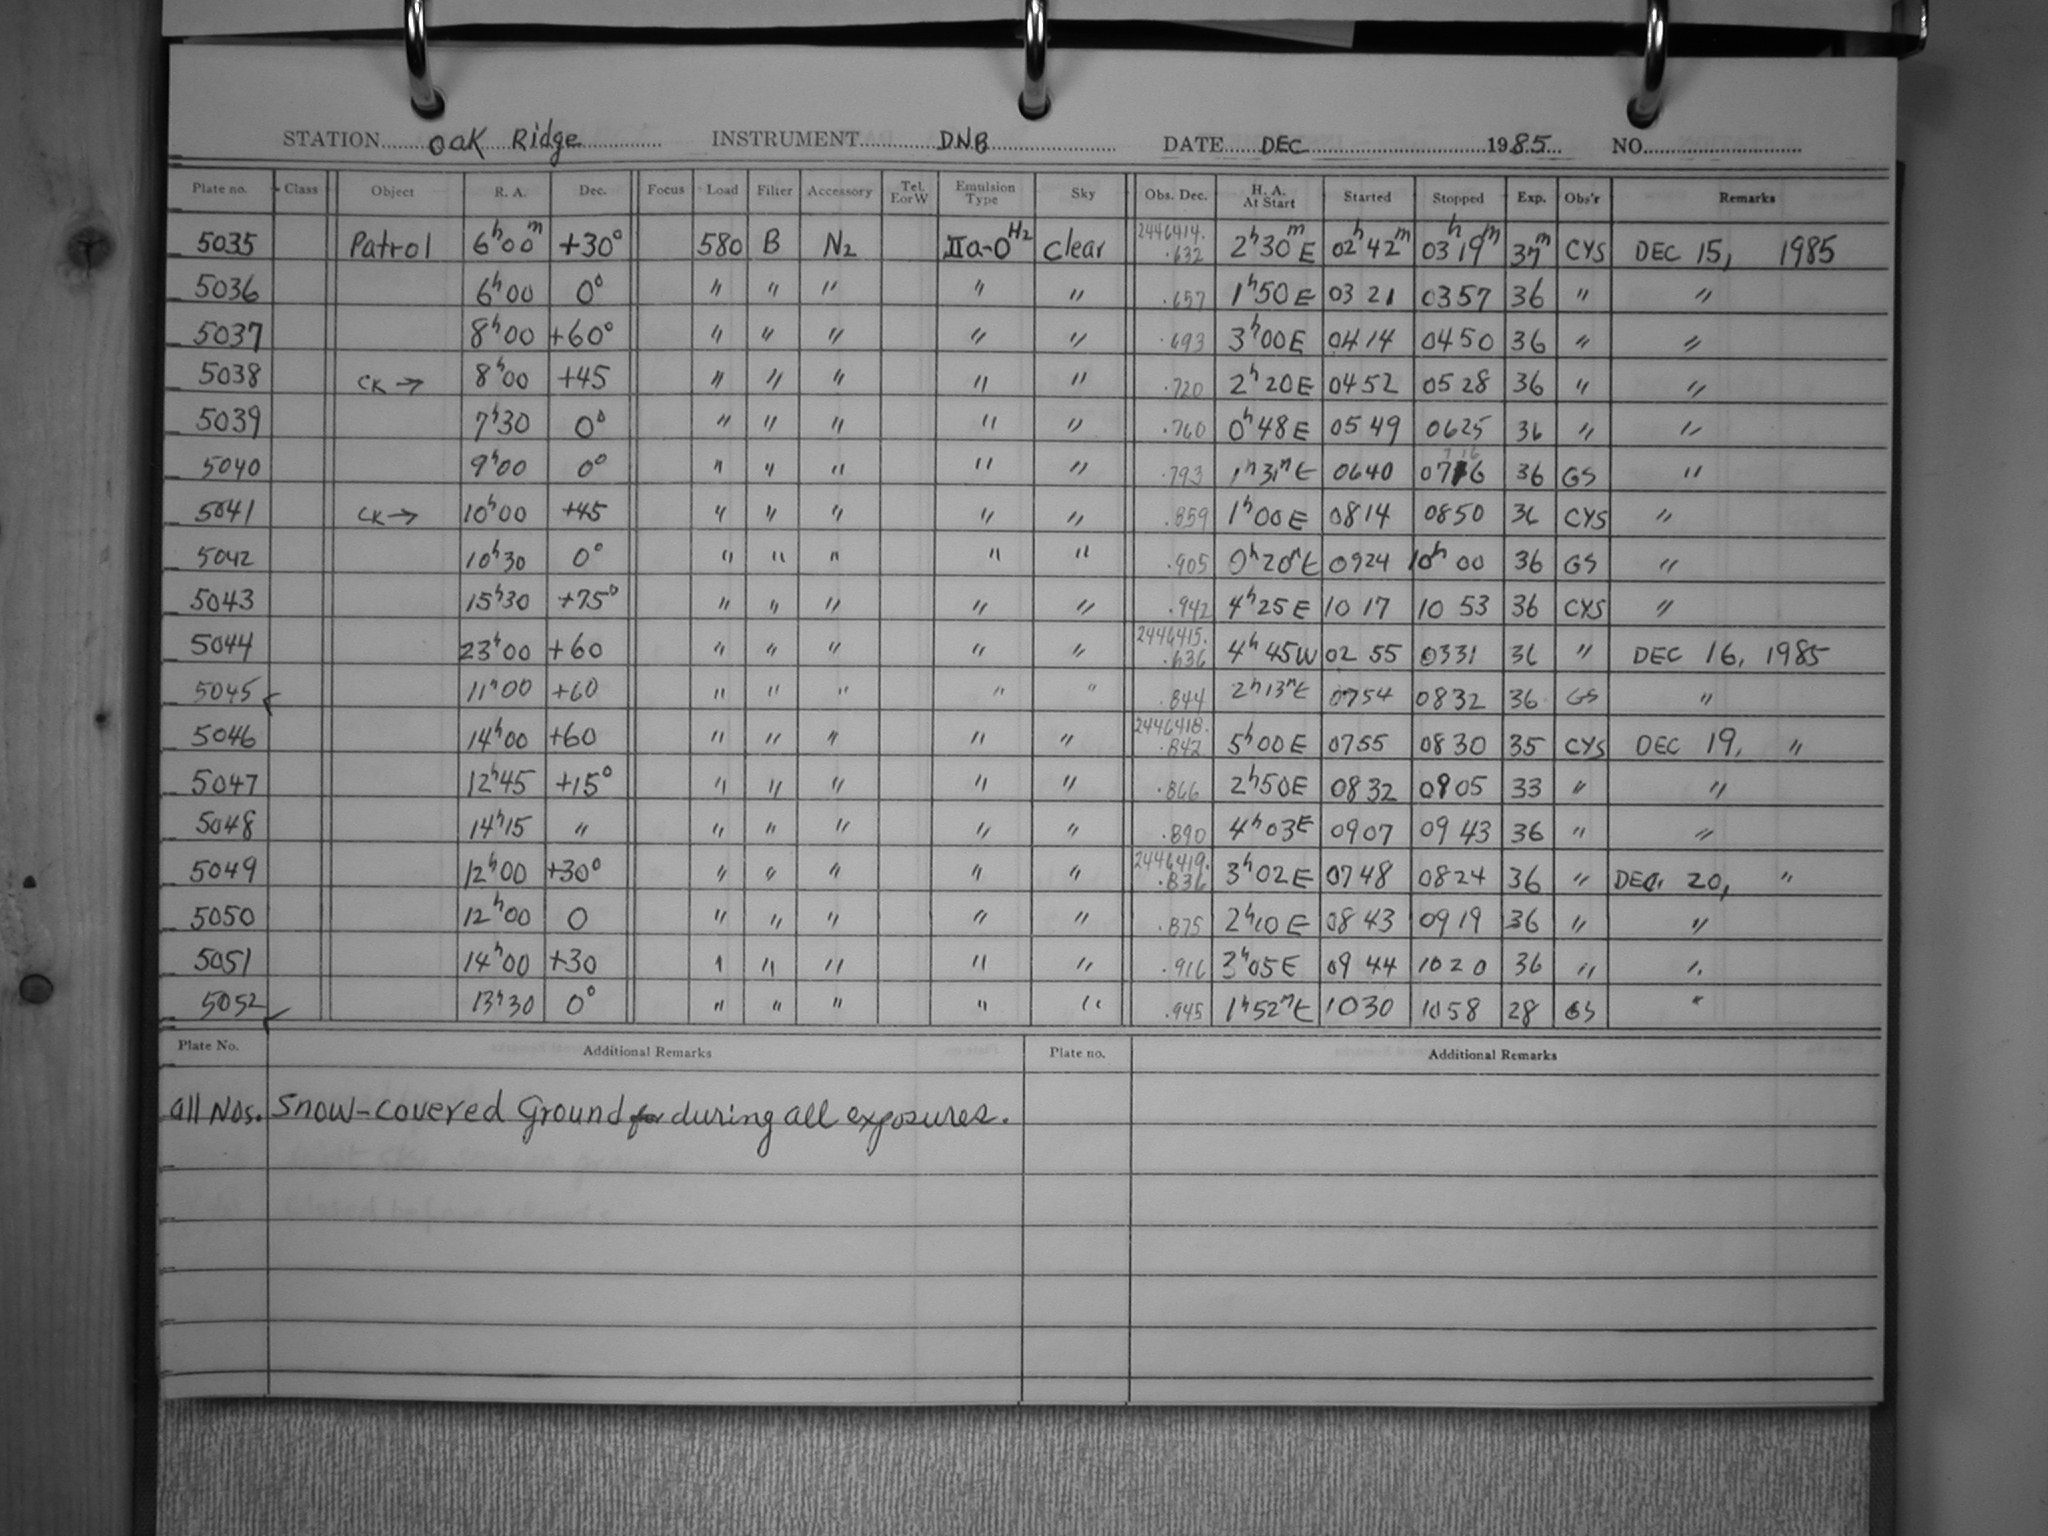 STATION Oak Ridge INSTRUMENT DNB DATE DEC 1985 NO.
Plate no. Class Object R. A. Dec. Focus Load Filter Accessory Tel. E or W Emulsion Type Sky Obs. Dec. H. A. At Start Started Stopped Exp. Obs'r Remarks
5035 Patrol 6h00m +30° 580 B N2 IIa-O H2 clear 2446414.632 2h30m E 02h42m 03h19m 37m CYS DEC 15, 1985
5036 6h00 0° " " " " " .657 1h50 E 03 21 0357 36 " "
5037 8h00 +60° " " " " " .693 3h00 E 04 14 04 50 36 " "
5038 CK → 8h00 +45 " " " " " .720 2h20 E 04 52 05 28 36 " "
5039 7h30 0° " " " " " .760 0h48 E 05 49 0625 36 " "
5040 9h00 0° " " " " " .793 1h31m E 0640 0716 36 GS "
5041 CK → 10h00 +45 " " " " " .859 1h00 E 0814 0850 36 CYS "
5042 10h30 0° " " " " " .905 0h20m E 0924 10h 00 36 GS "
5043 15h30 +75° " " " " " .942 4h25 E 10 17 10 53 36 CYS "
5044 23h00 +60 " " " " " 2446415.636 4h45W 02 55 0331 36 " DEC 16, 1985
5045 11h00 +60 " " " " " .844 2h13m E 0754 0832 36 GS "
5046 14h00 +60 " " " " " 2446418.842 5h00 E 0755 0830 35 CYS DEC 19, "
5047 12h45 +15° " " " " " .866 2h50E 0832 0905 33 " "
5048 14h15 " " " " " " .890 4h03E 0907 09 43 36 " "
5049 12h00 +30° " " " " " 2446419.836 3h02 E 0748 0824 36 " DEC. 20, "
5050 12h00 0 " " " " " .875 2h10 E 08 43 0919 36 " "
5051 14h00 +30 " " " " " .916 3h05 E 09 44 1020 36 " "
5052 13h30 0° " " " " " .945 1h52m E 1030 1058 28 GS "
Plate No. Additional Remarks Plate no. Additional Remarks
all Nos. Snow-covered Ground for during all exposures.